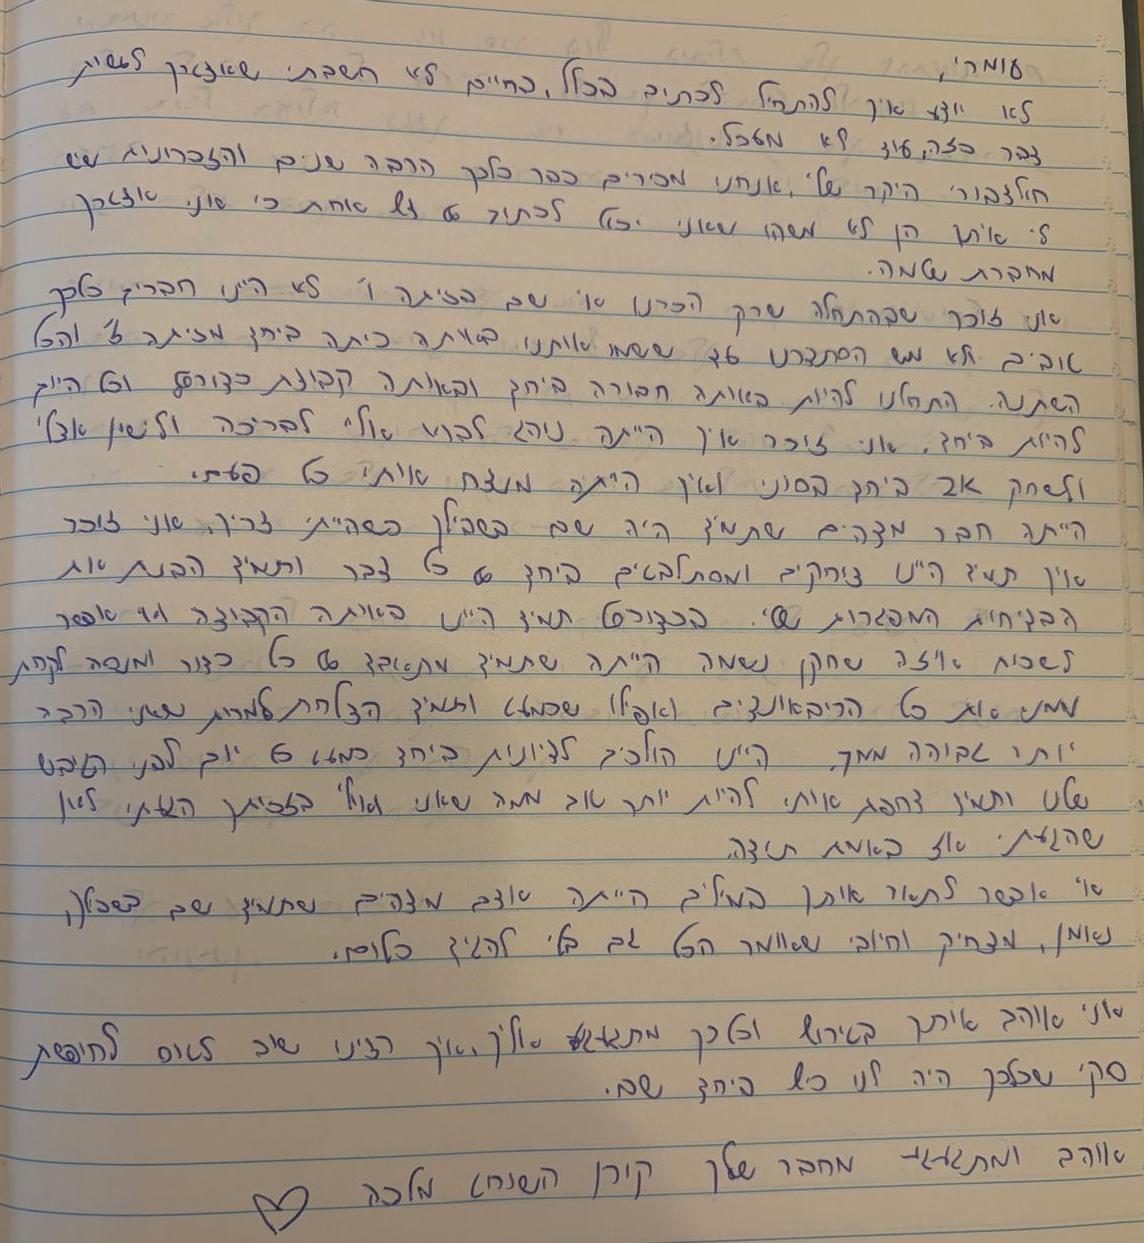 עומרי,
לא יודע איך להתחיל לכתוב בכלל, בחיים לא חשבתי שאצטרך לעשות
דבר כזה, עוד לא מעכל.
היקר שלי, אנחנו מכירים כבר כלכך הרבה שנים והזכרונות שיש
לי איתך הן לא משהו שאני יכול לכתוב על דף אחת כי אני אצטרך
מחברת שלמה.
אני זוכר שבהתחלה שרק הכרנו אי שם בכיתה ו' לא היינו חברים כלכך
טובים ולא ממש הסתדרנו עד ששמו אותנו באותה כיתה ביחד מכיתה ז' והכל
השתנה. התחלנו להיות באותה חבורה ביחד ובאותה קבוצת כדורסל וכל היום
להיות ביחד. אני זוכר איך הייתה נוהג לבוא אליי לבריכה ולישון אצלי
ולשחק אצלי ביחד בסוני ואיך הייתה מנצח אותי כל פעם.
הייתה חבר מדהים שתמיד היה שם בשבילך כשהייתי צריך, אני זוכר
איך תמיד היינו צוחקים ומסתלבטים ביחד על כל דבר ותמיד הבנת את
הבדיחות המפגרות שלי. בכדורסל תמיד היינו באותה הקבוצה ואי אפשר
לשכוח איזה שחקן נשמה הייתה שתמיד מתאבד על כל כדור ומנסה לקחת
ממני את כל הריבאונדים ואפילו שכמעט ותמיד הצלחת למרות שאני הרבה
יותר גבוהה ממך. היינו הולכים לדיונות ביחד כמעט כל יום לפני הגיבוש
שלנו ותמיד דחפת אותי להיות יותר טוב ממה שאני ואולי בזכותך הגעתי לאן
שהגעתי אז באמת תודה.
אי אפשר לתאר אותך במילים הייתה אדם מדהים שתמיד שם בשבילך,
נאמן, מצחיק וחיובי שאומר הכל גם בלי להגיד כלום.
אני אוהב אותך בטירוף וכלכך מתגעגע אליך, איך רצינו שוב לטוס לחופשת
סקי שכלכך היה לנו כיף ביחד שם.
אוהב ומתגעגע מחבר שלך קורן מלכה